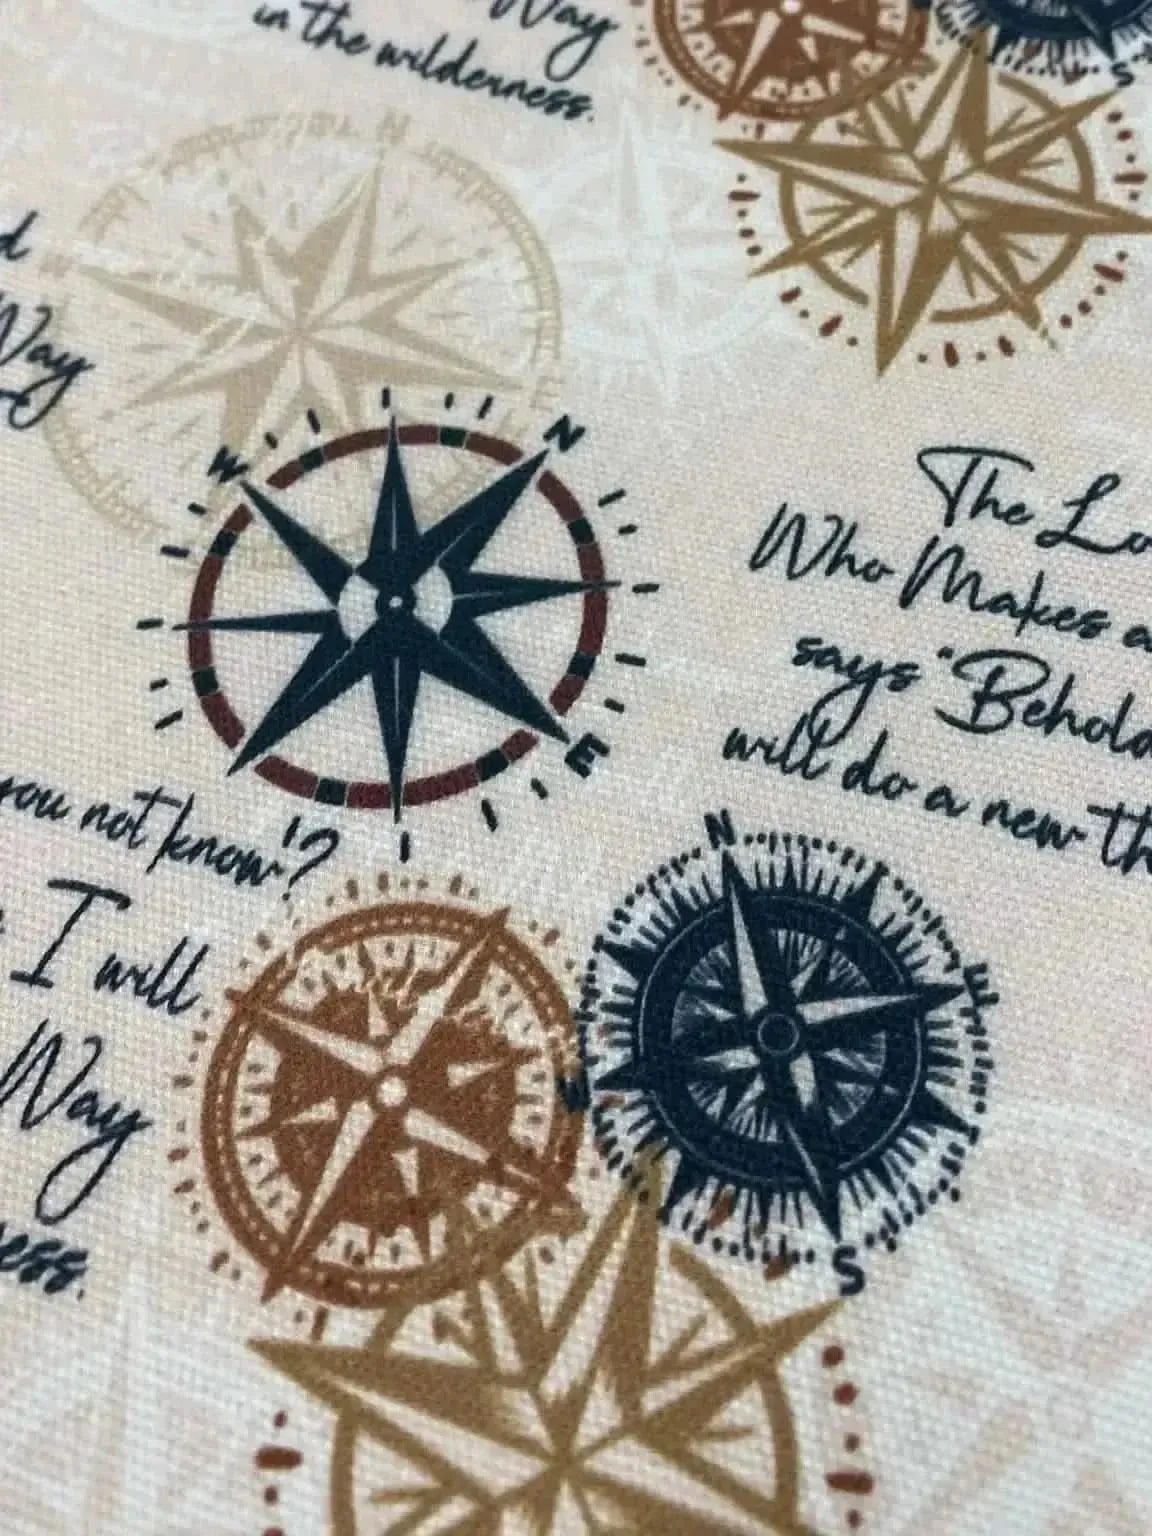 Way
in the wilderness.
N
S
d
Way
W
N
E
The Lo
Who Makes a
says "Behold
will do a new th
you not know'?
I will
Way
ness.
N
E
S
N